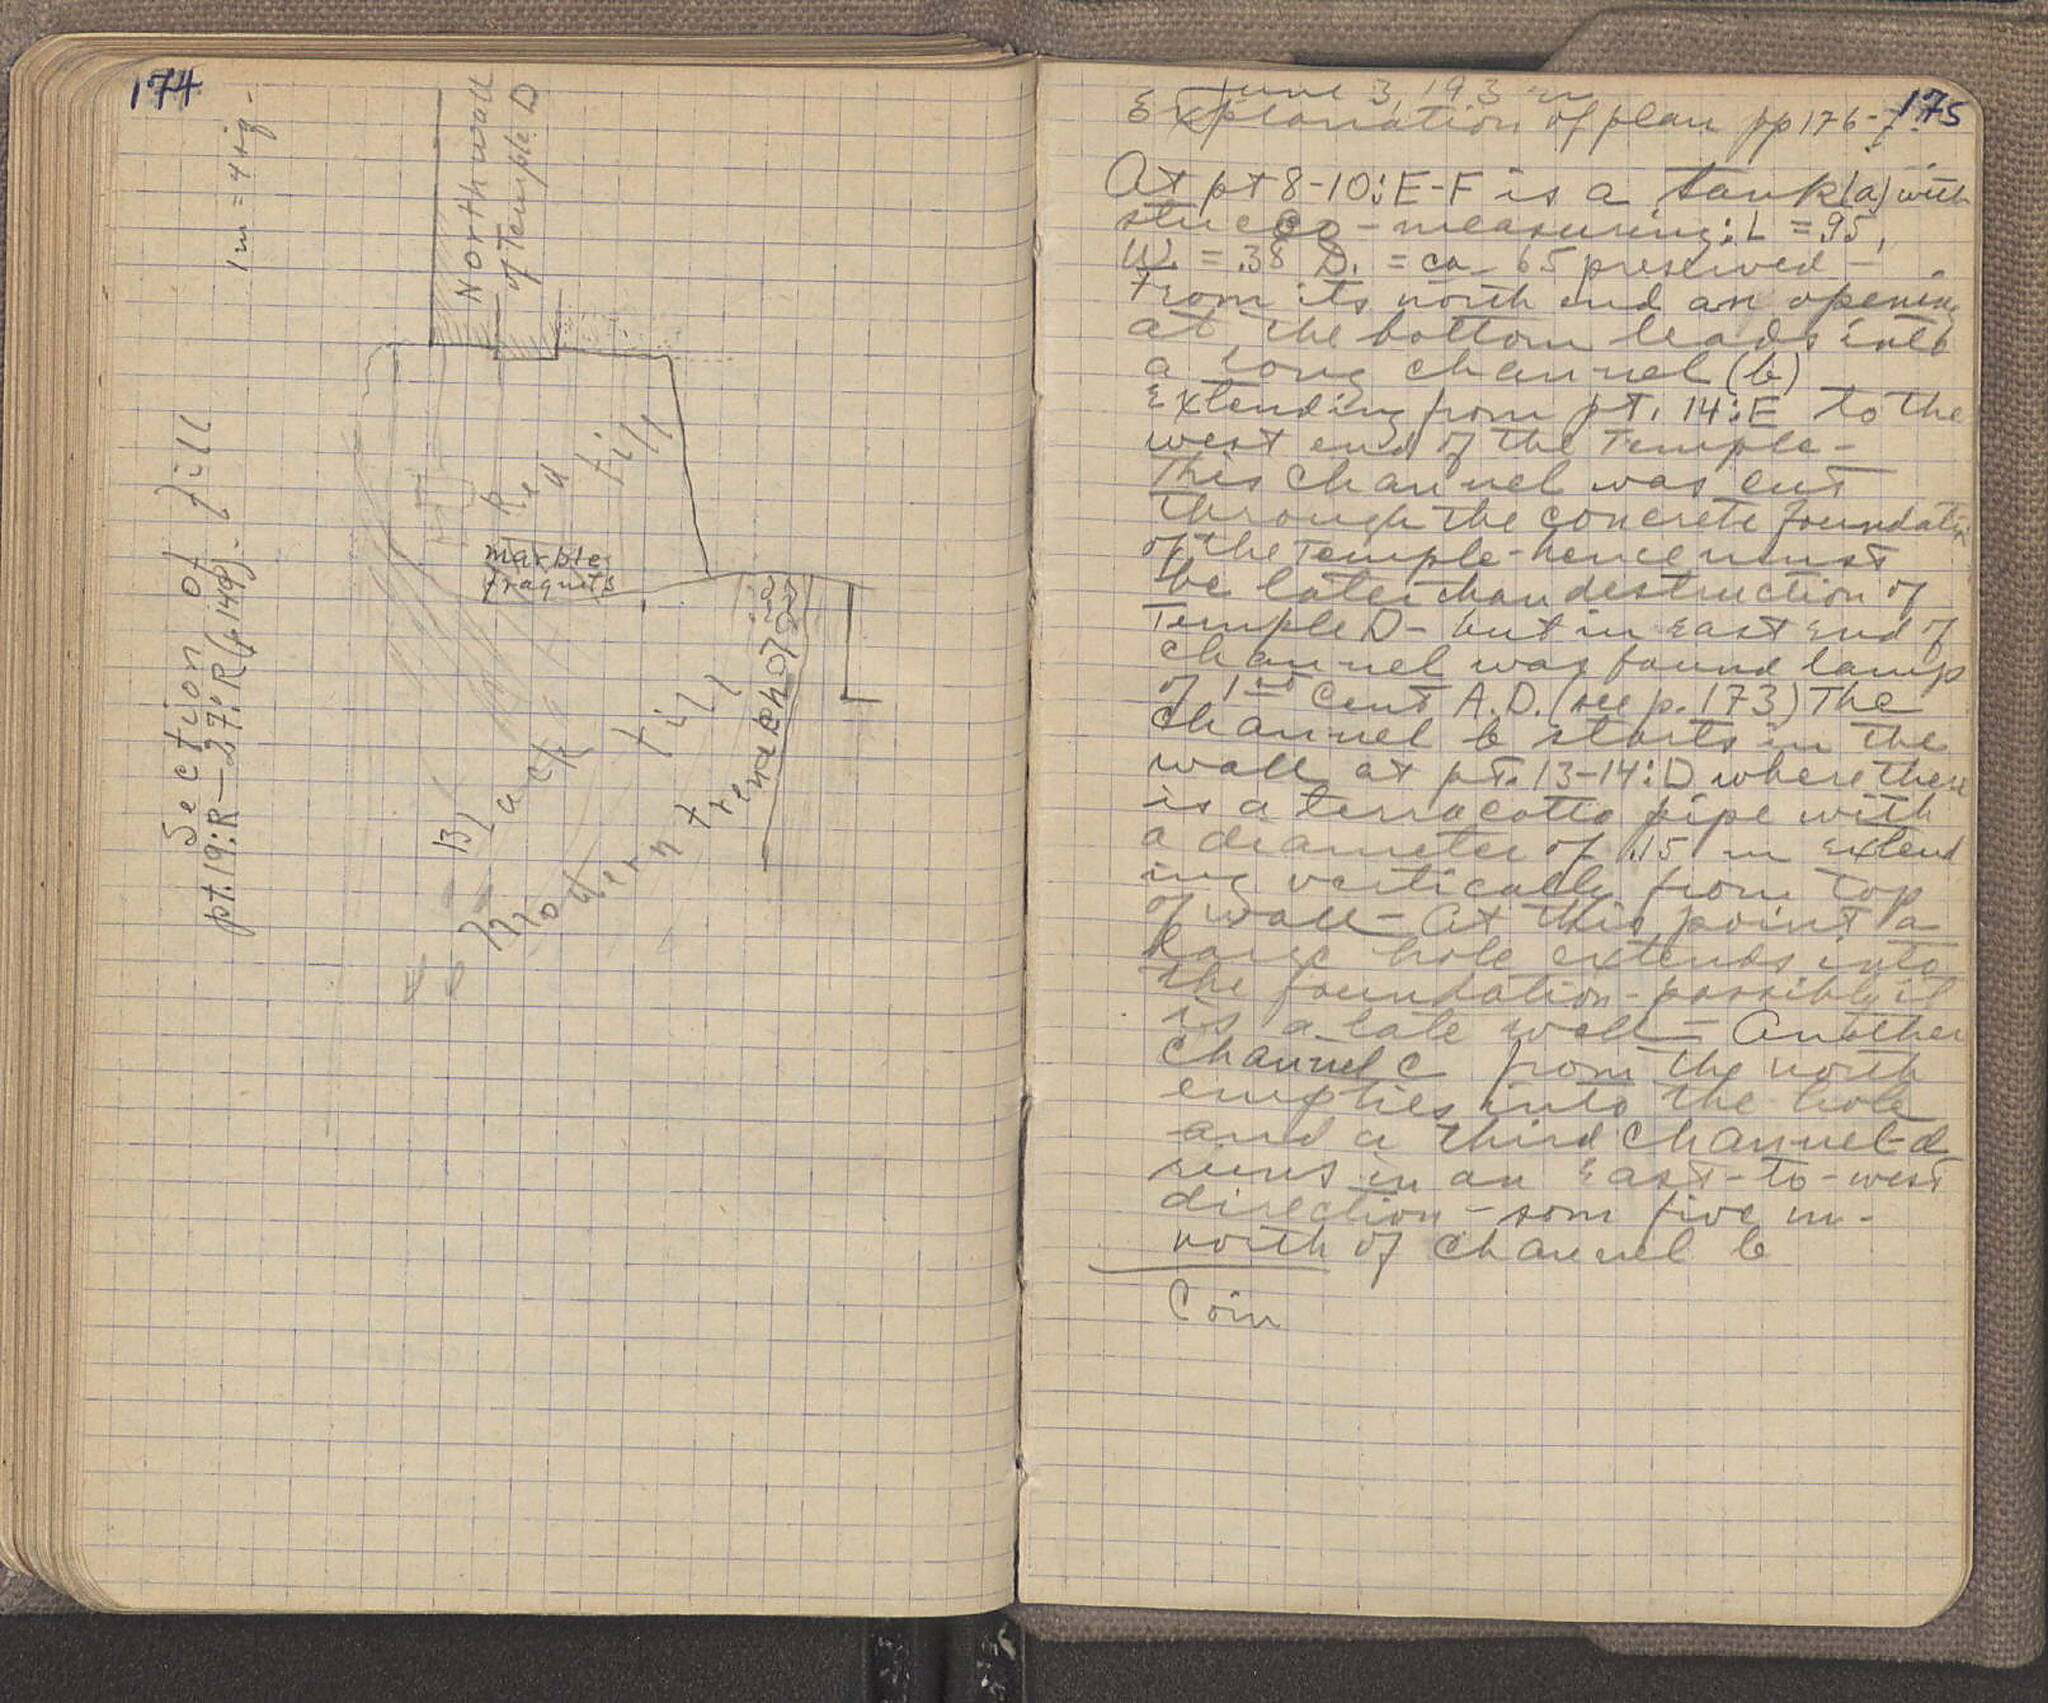 174
1m = 4 sq.
North wall
of Temple D
Section of fill
pt. 19:R — 27:R (p 149).
Red fill
marble
fragmts
Black fill
Modern trench
175
June 3, 193
Explanation of plan pp 176-7.
At pt 8-10:E-F is a tank (a) with
stucco - measuring: L = .95,
W. = .38 D. = ca .65 preserved -
From its north end an opening
at the bottom leads into
a long channel (b)
Extending from pt. 14:E to the
west end of the Temple -
This channel was cut
through the concrete foundation
of the Temple - hence must
be later than destruction of
Temple D - but in East End of
channel was found lamp
of 1st Cent A.D. (see p. 173) The
channel b starts in the
wall at pt. 13-14:D where there
is a terracotta pipe with
a diameter of .15 m extend
ing vertically from top
of wall - At this point a
large hole extends into
the foundation - possibly it
is a late well - Another
Channel c from the north
empties into the hole
and a third channel-d
runs in an East-to-west
direction - som five m.
north of channel b
Coin